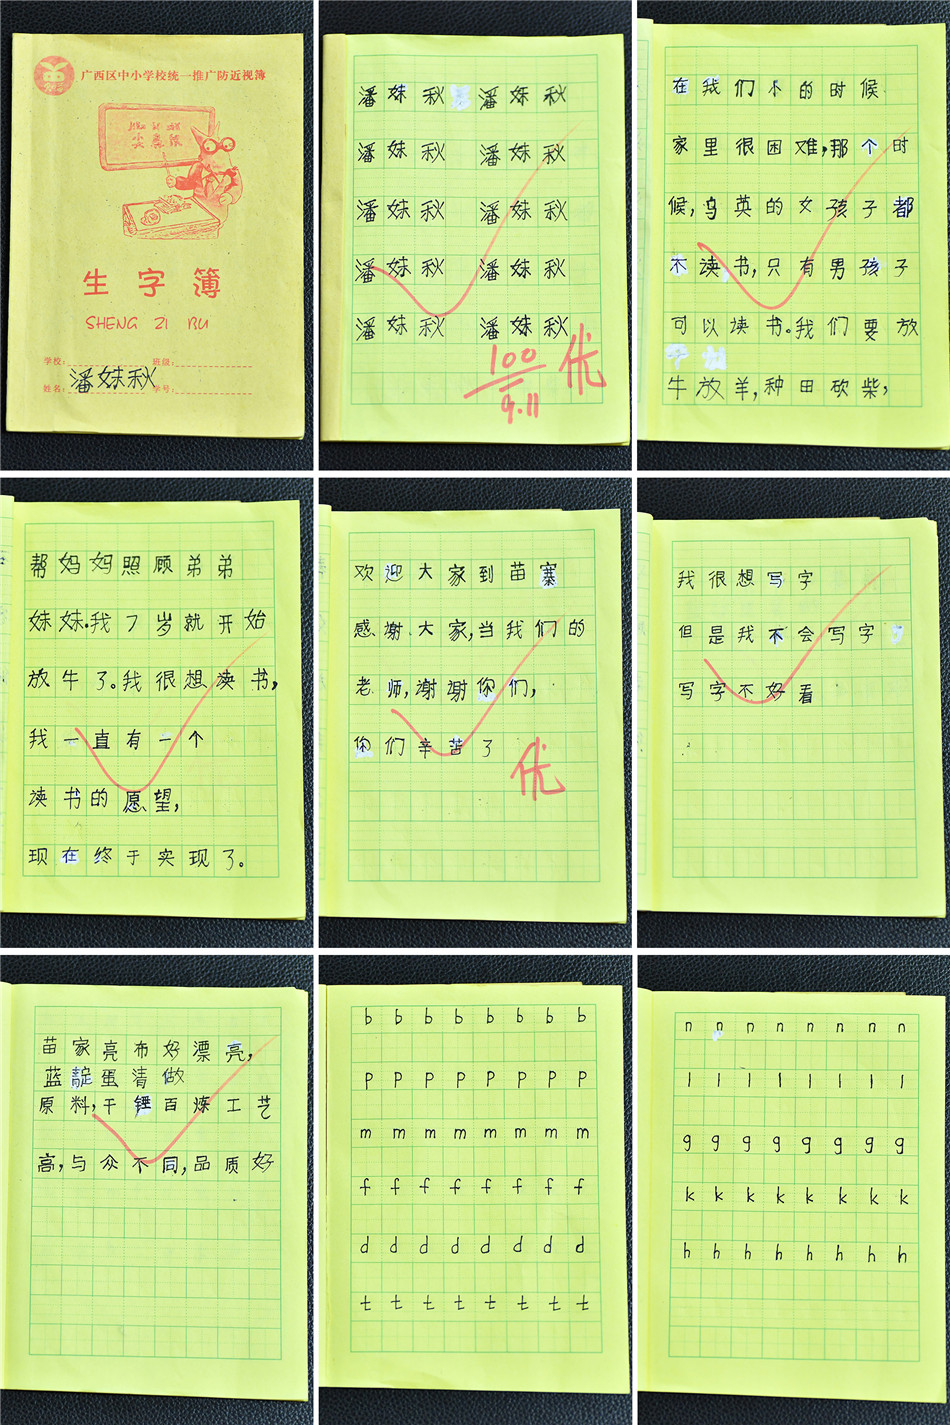 广西区中小学校统一推广防近视簿
生字簿
SHENG ZI BU
学校: 班级:
姓名: 潘妹秋 学号:
潘妹秋 潘妹秋
潘妹秋 潘妹秋
潘妹秋 潘妹秋
潘妹秋 潘妹秋
潘妹秋 潘妹秋
100
9.11
优
在我们小的时候
家里很困难,那个时
候,乌英的女孩子都
不读书,只有男孩子
可以读书。我们要放
牛放羊,种田砍柴,
帮妈妈照顾弟弟
妹妹.我7岁就开始
放牛了。我很想读书,
我一直有一个
读书的愿望,
现在终于实现了。
欢迎大家到苗寨
感谢大家,当我们的
老师,谢谢你们,
你们辛苦了
优
我很想写字
但是我不会写字
写字不好看
苗家亮布好漂亮,
蓝靛蛋清做
原料,千锤百炼工艺
高,与众不同,品质好
b b b b b b b b
p p p p p p p p
m m m m m m m m
f f f f f f f f
d d d d d d d d
t t t t t t t t
n n n n n n n n
l l l l l l l l
g g g g g g g g
k k k k k k k k
h h h h h h h h